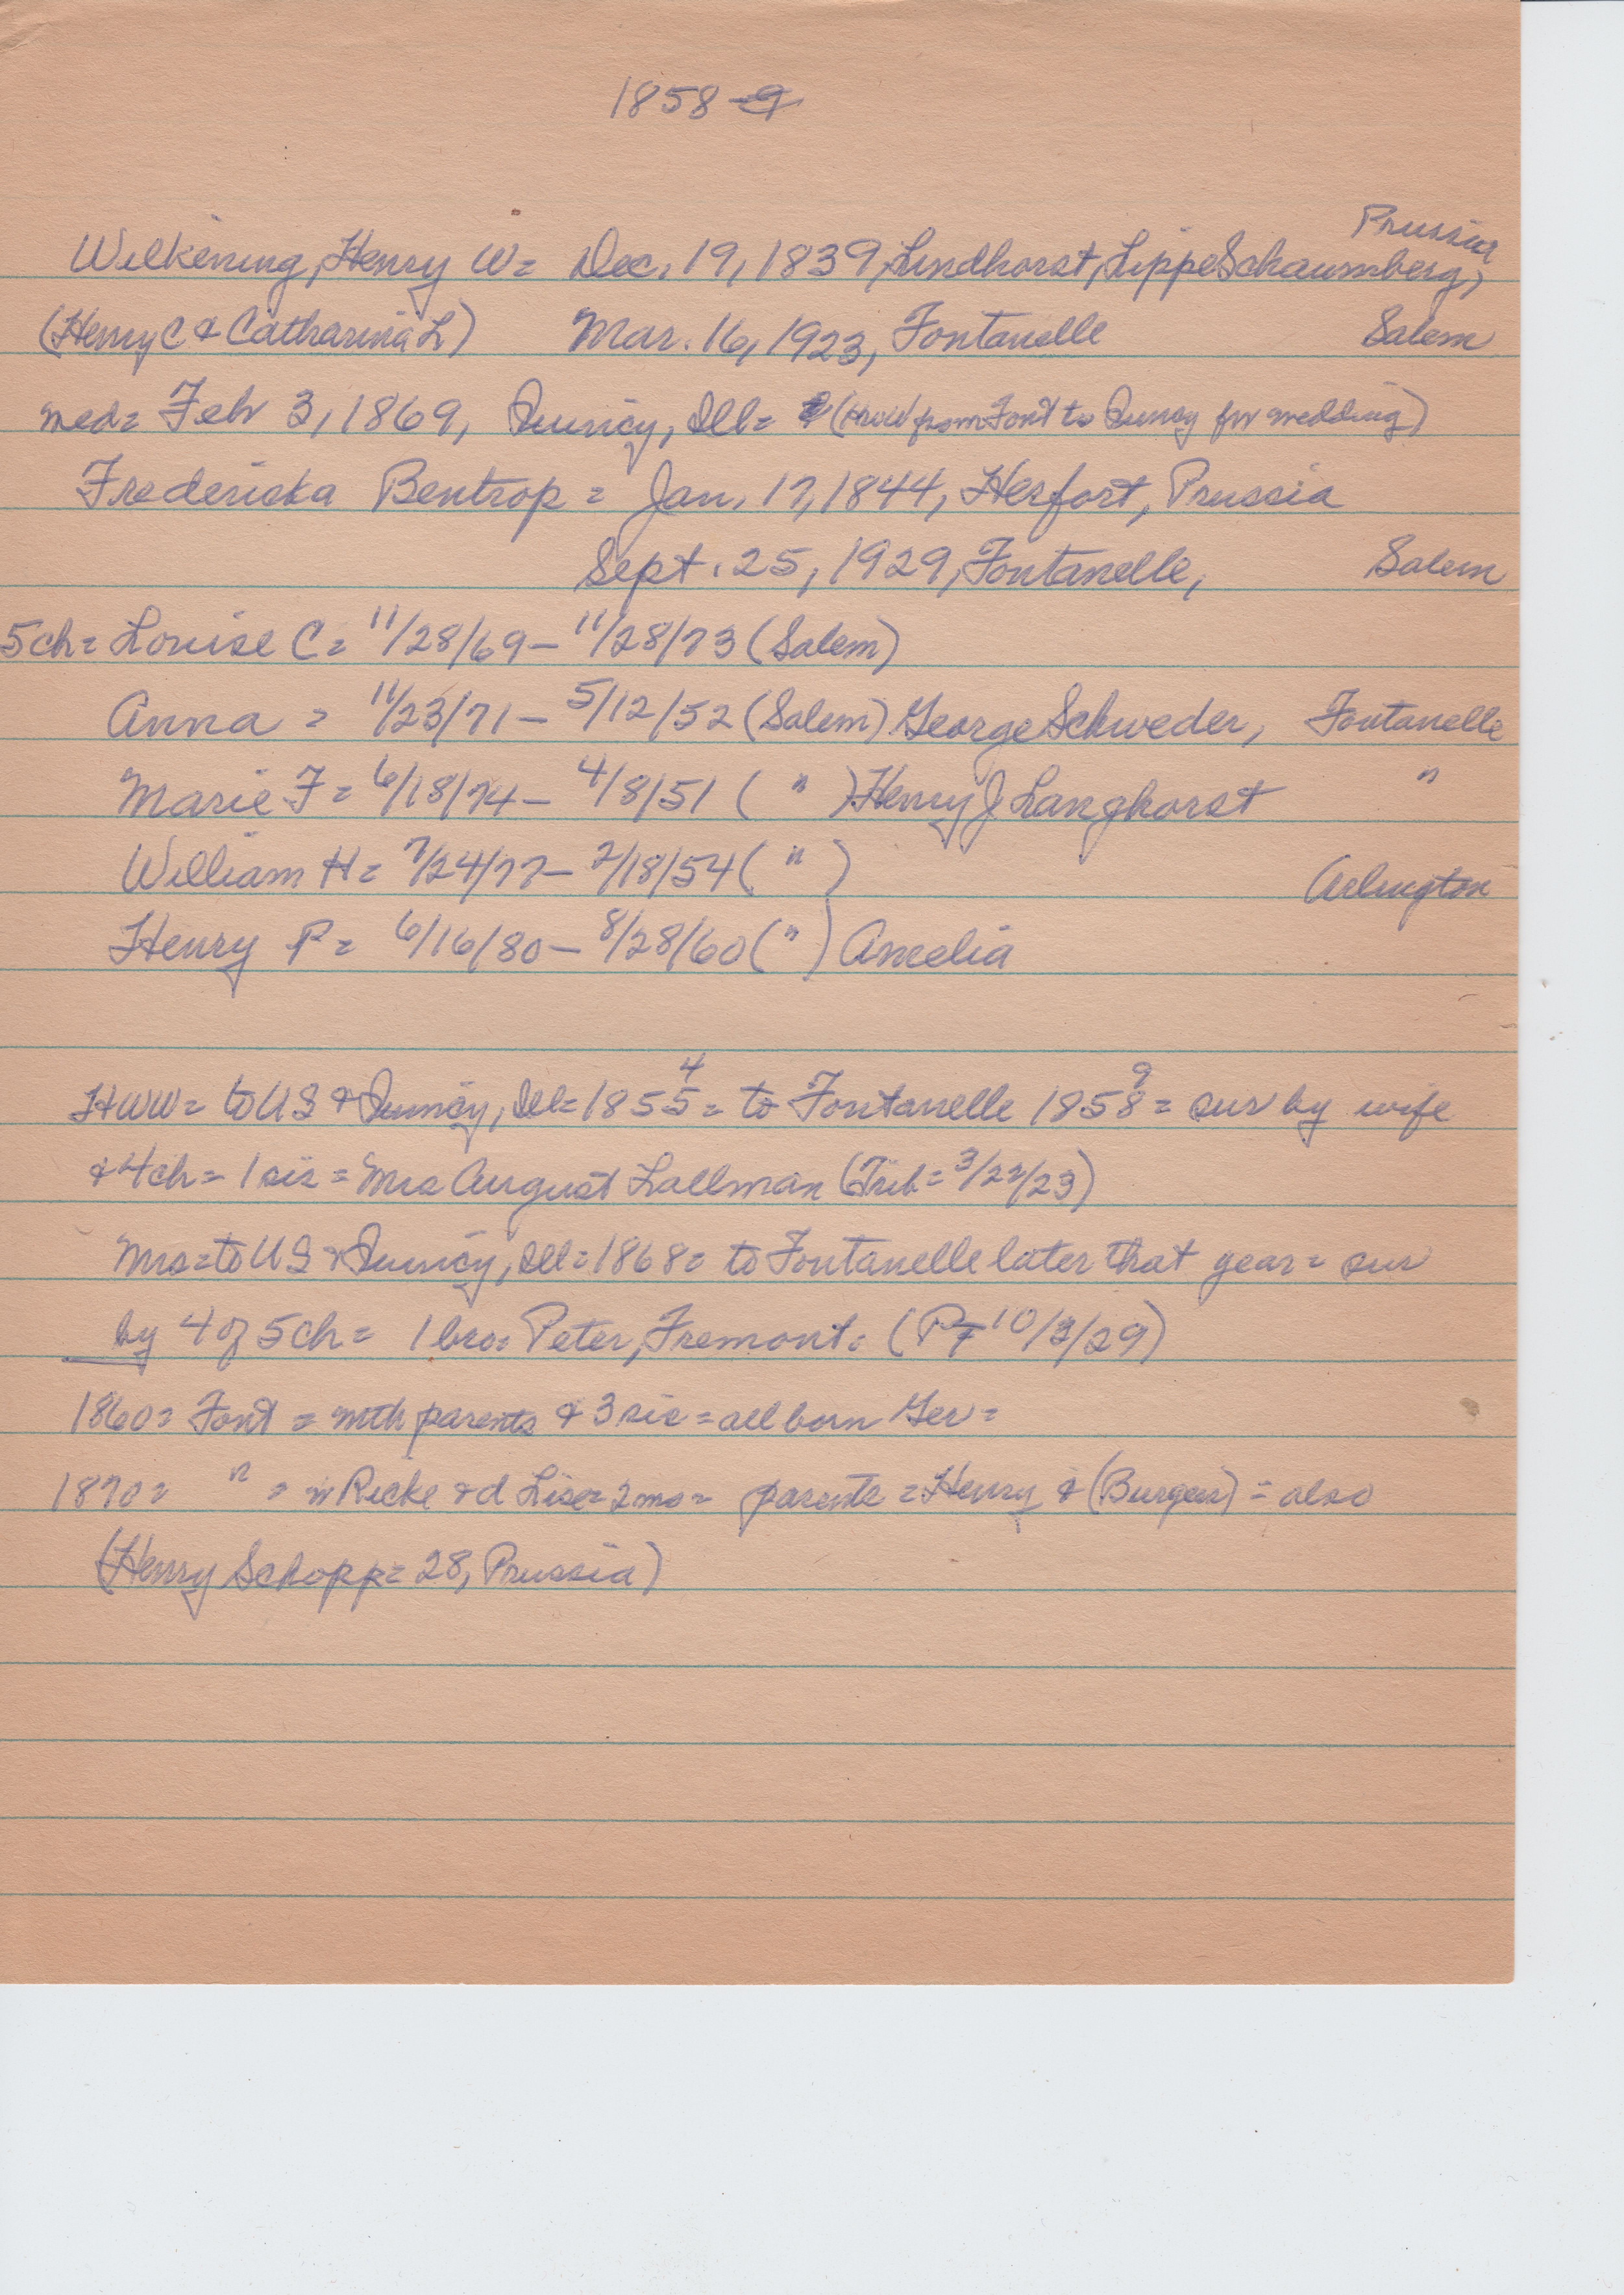 1858-9
Wilkening, Henry W= Dec. 19, 1839, Lindhorst, LippeSchaumberg, Prussia
(Henry C & Catharina L) Mar. 16, 1923, Fontanelle Salem
med= Feb 3, 1869, Quincy, Ill= (drove from Font to Quincy for wedding)
Fredericka Bentrop = Jan. 17, 1844, Herfort, Prussia
Sept. 25, 1929, Fontanelle, Salem
5ch= Louise C= 11/28/69 - 11/28/73 (Salem)
Anna = 11/23/71 - 5/12/52 (Salem) George Schweder, Fontanelle
Marie F= 6/18/74 - 4/8/51 ( " ) Henry J Langhorst "
William H= 7/24/77 - 2/18/54 ( " ) Arlington
Henry P= 6/16/80 - 8/28/60 ( " ) Amelia
HWW= to US & Quincy, Ill= 1855 4 = to Fontanelle 1858 9 = sur by wife
& 4ch= 1 sis= Mrs August Lallman (Trib= 3/22/23)
Mrs= to US & Quincy, Ill= 1868= to Fontanelle later that year= sur
by 4 of 5ch= 1 bro= Peter, Fremont= (PT 10/3/29)
1860= Font = mth parents & 3 sis= all born Ger=
1870= " = w Ricke & d Lise= 2mo= parents = Henry & (Burger) = also
(Henry Schopp= 28, Prussia)